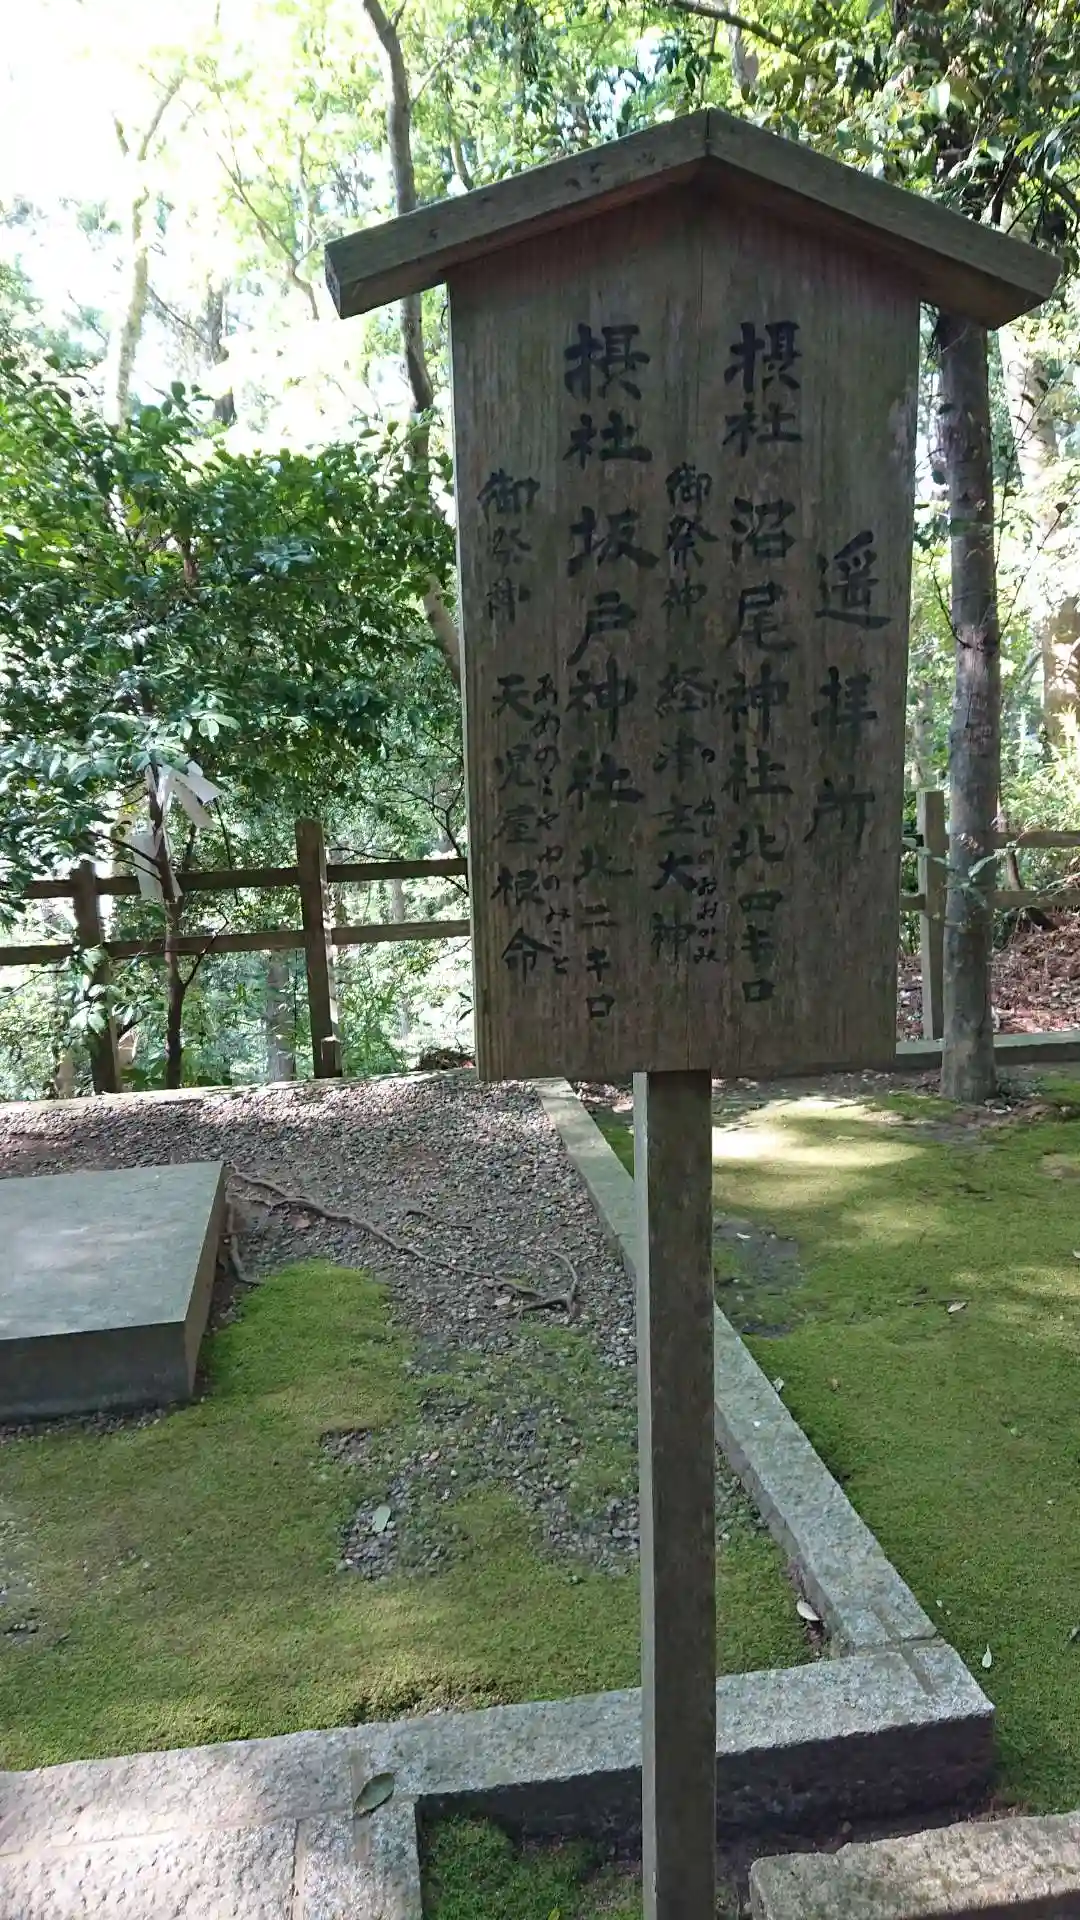 遥拝所
摂社 沼尾神社 北四キロ
御祭神 経津主大神
ふつぬしのおおかみ
摂社 坂戸神社 北二キロ
御祭神 天児屋根命
あめのこやねのみこと